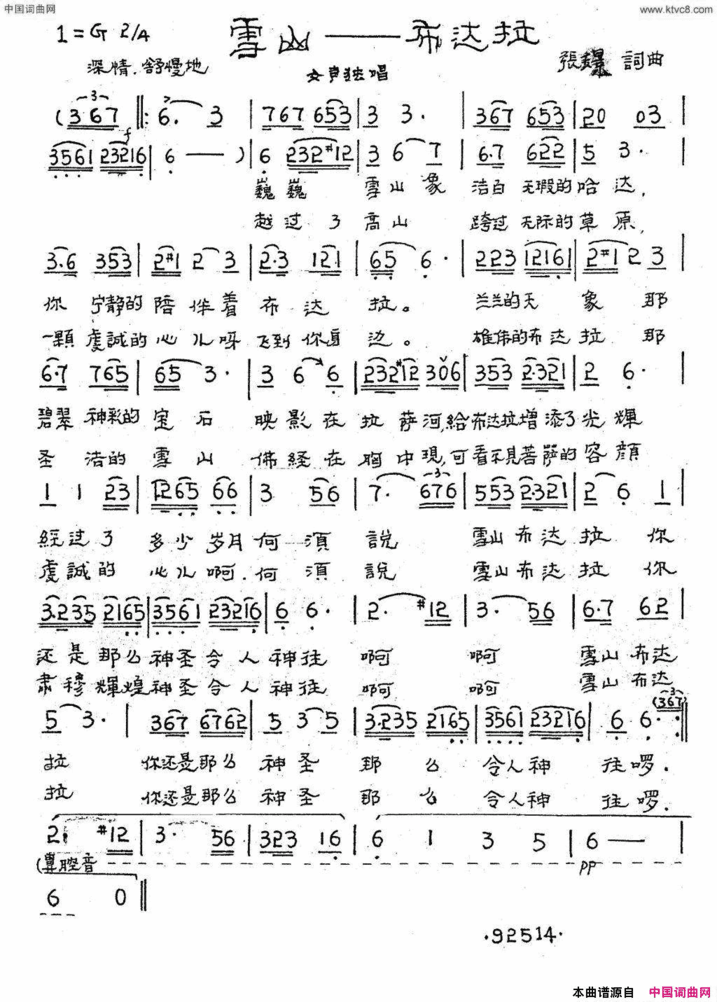 中国词曲网
www.ktvc8.com
1=G 2/4
雪山——布达拉
深情.舒慢地
女声独唱
張 詞曲
(367 ‖: 6. 3 | 767 653 | 3 3. | 367 653 | 20 03 |
f
3561 23216 | 6 — ) | 6 232#12 | 3 6 7 | 6.7 622 | 5 3. |
巍巍 雪山象 洁白无瑕的哈达,
越过了高山 跨过无际的草原,
3.6 353 | 2#1 2 3 | 2.3 121 | 65 6. | 223 12161 | 2#1 2 3 |
你宁静的陪伴着布达拉。 兰兰的天象那
一颗虔誠的心儿呀飞到你身边。 雄伟的布达拉那
6.7 765 | 65 3. | 3 6 6 | 232#12 306 | 353 2.321 | 2 6. |
碧翠神彩的宝石映影在拉萨河,给布达拉增添了光輝
圣洁的雪山佛經在胸中現,可看不見菩萨的容顔
1 1 23 | 1265 66 | 3 56 | 7. 676 | 553 2.321 | 2 6 1 |
經过了多少岁月何須說 雪山布达拉你
虔誠的心儿啊.何須說 雪山布达拉你
3.235 2165 | 3561 23216 | 6 6. | 2. #12 | 3. 56 | 6.7 62 |
还是那么神圣令人神往 啊 啊 雪山布达
肃穆輝煌神圣令人神往 啊 啊 雪山布达
5 3. | 367 6762 | 5 3 5 | 3.235 2165 | 3561 23216 | 6 6. (367 :‖
拉 你还是那么神圣那么令人神往啰.
拉 你还是那么神圣那么令人神往啰.
2. #12 | 3. 56 | 323 16 | 6 1 3 5 | 6 — |
(鼻腔音
pp
6 0 ‖
.92514.
本曲谱源自 中国词曲网